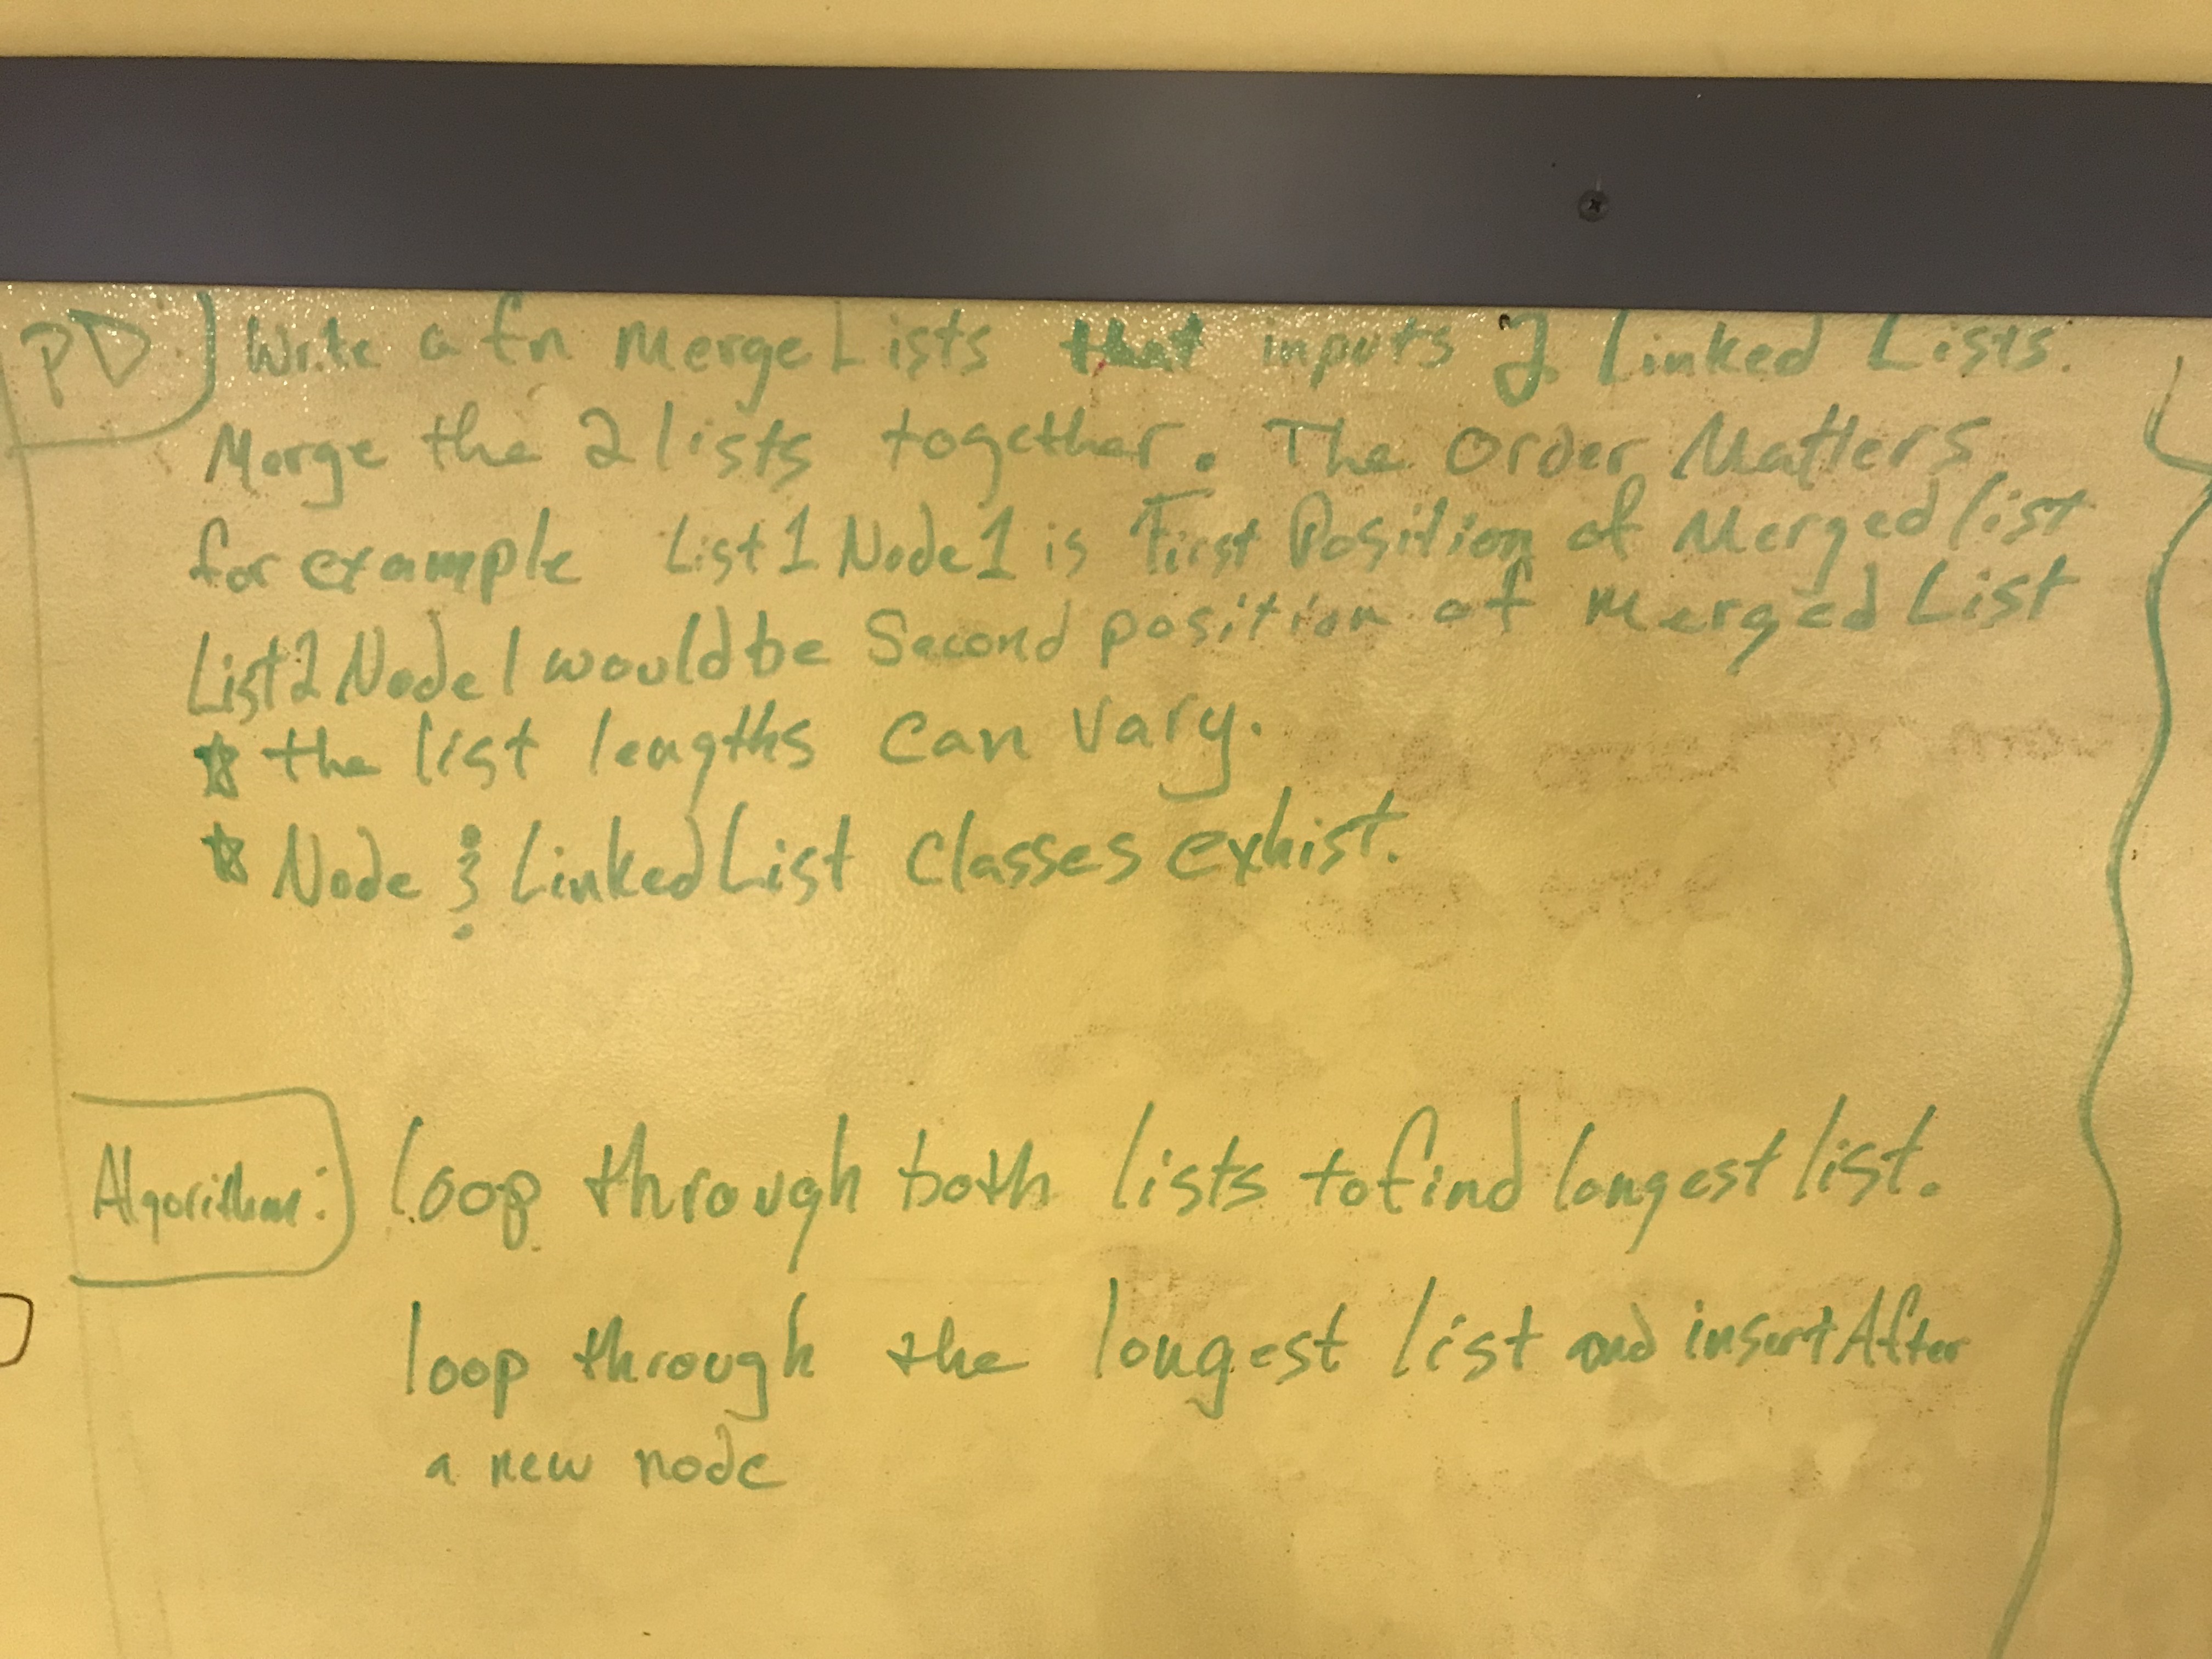 PD Write a fn MergeLists that inputs 2 Linked Lists.
Merge the 2 lists together. The Order Matters
for example List1Node1 is First Position of Merged list
List2Node1 would be Second position of Merged List
☆ the list lengths can vary.
☆ Node & LinkedList Classes exhist.
Algorithm: loop through both lists to find longest list.
loop through the longest list and insertAfter
a new node